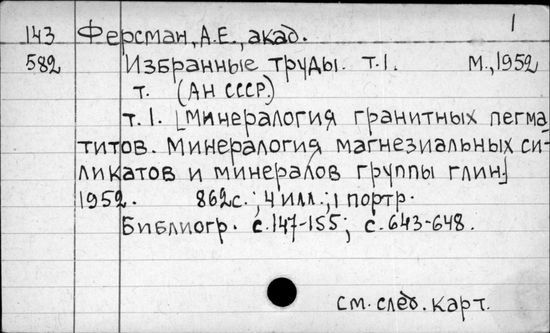 1
143 Ферсман, А.Е., акад.
582 Избранные труды. т.1. М., 1952
т. (АН СССР.)
т.1. [Минералогия гранитных пегма-
титов. Минералогия магнезиальных си-
ликатов и минералов группы глин]
1952. 862с.; 4 илл.; 1 портр.
Библиогр. с.147-155; с.643-648.
см. след. карт.